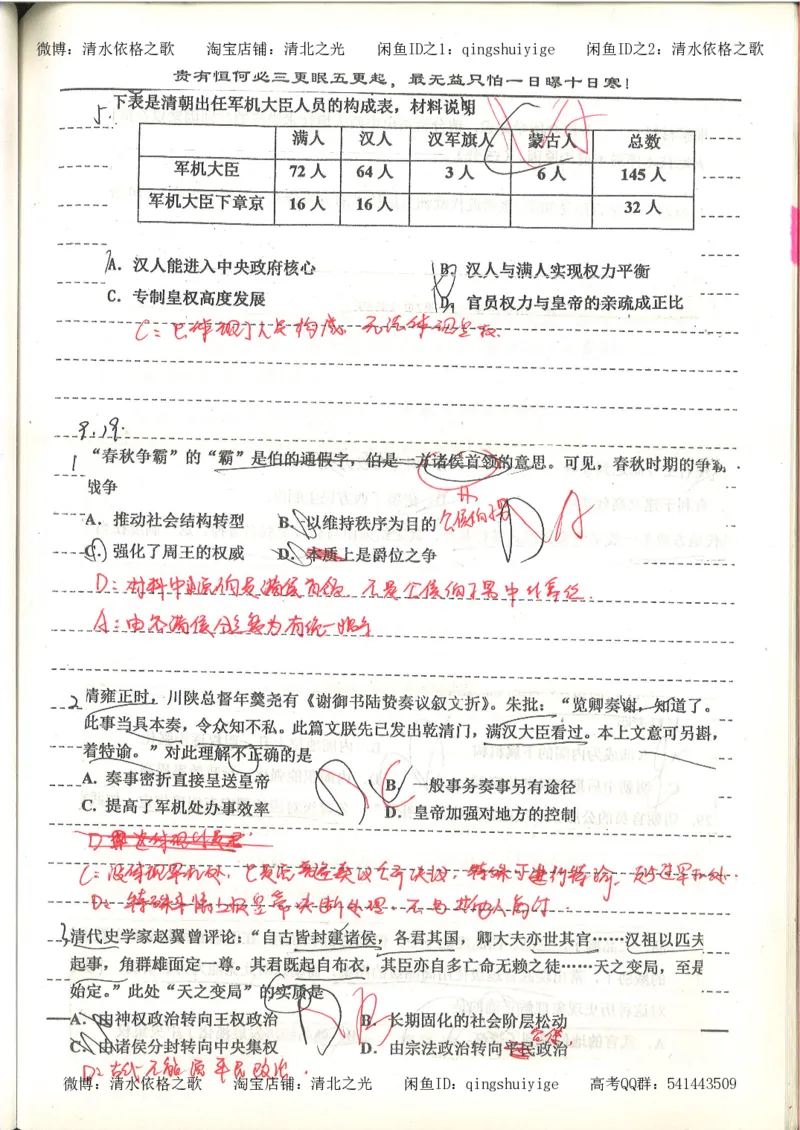 微博：清水依格之歌 淘宝店铺：清北之光 闲鱼ID之1：qingshuiyige 闲鱼ID之2：清水依格之歌
贵有恒何必三更眠五更起，最无益只怕一日曝十日寒！
5. 下表是清朝出任军机大臣人员的构成表，材料说明 A
满人 汉人 汉军旗人 蒙古人 总数
军机大臣 72人 64人 3人 6人 145人
军机大臣下章京 16人 16人 32人
A．汉人能进入中央政府核心 B．汉人与满人实现权力平衡
C．专制皇权高度发展 D．官员权力与皇帝的亲疏成正比
C：只体现了人员构成，无法体现皇权
9.19.
1 “春秋争霸”的“霸”是伯的通假字，伯是一方诸侯首领的意思。可见，春秋时期的争霸
战争
A．推动社会结构转型 B．以维持秩序为目的 公侯伯子男 A
C．强化了周王的权威 D．本质上是爵位之争
D：材料中 伯是诸侯首领，不是公侯伯子男中 爵位.
A：由各诸侯 变为有统一
2 清雍正时，川陕总督年羹尧有《谢御书陆贽奏议叙文折》。朱批：“览卿奏谢，知道了。
此事当具本奏，令众知不私。此篇文朕先已发出乾清门，满汉大臣看过。本上文意可另斟，
着特谕。”对此理解不正确的是
A．奏事密折直接呈送皇帝 B．一般事务奏事另有途径
C．提高了军机处办事效率 D．皇帝加强对地方的控制
C
C：没体现军机处，
D：特殊 皇帝决断处理，不是
3 清代史学家赵翼曾评论：“自古皆封建诸侯，各君其国，卿大夫亦世其官……汉祖以匹夫
起事，角群雄而定一尊。其君既起自布衣，其臣亦自多亡命无赖之徒……天之变局，至是
始定。”此处“天之变局”的实质是
B
A．由神权政治转向王权政治 B．长期固化的社会阶层松动
C．由诸侯分封转向中央集权 D．由宗法政治转向平民政治
官僚
D：古代不能 平民政治.
微博：清水依格之歌 淘宝店铺：清北之光 闲鱼ID：qingshuiyige 高考QQ群：541443509